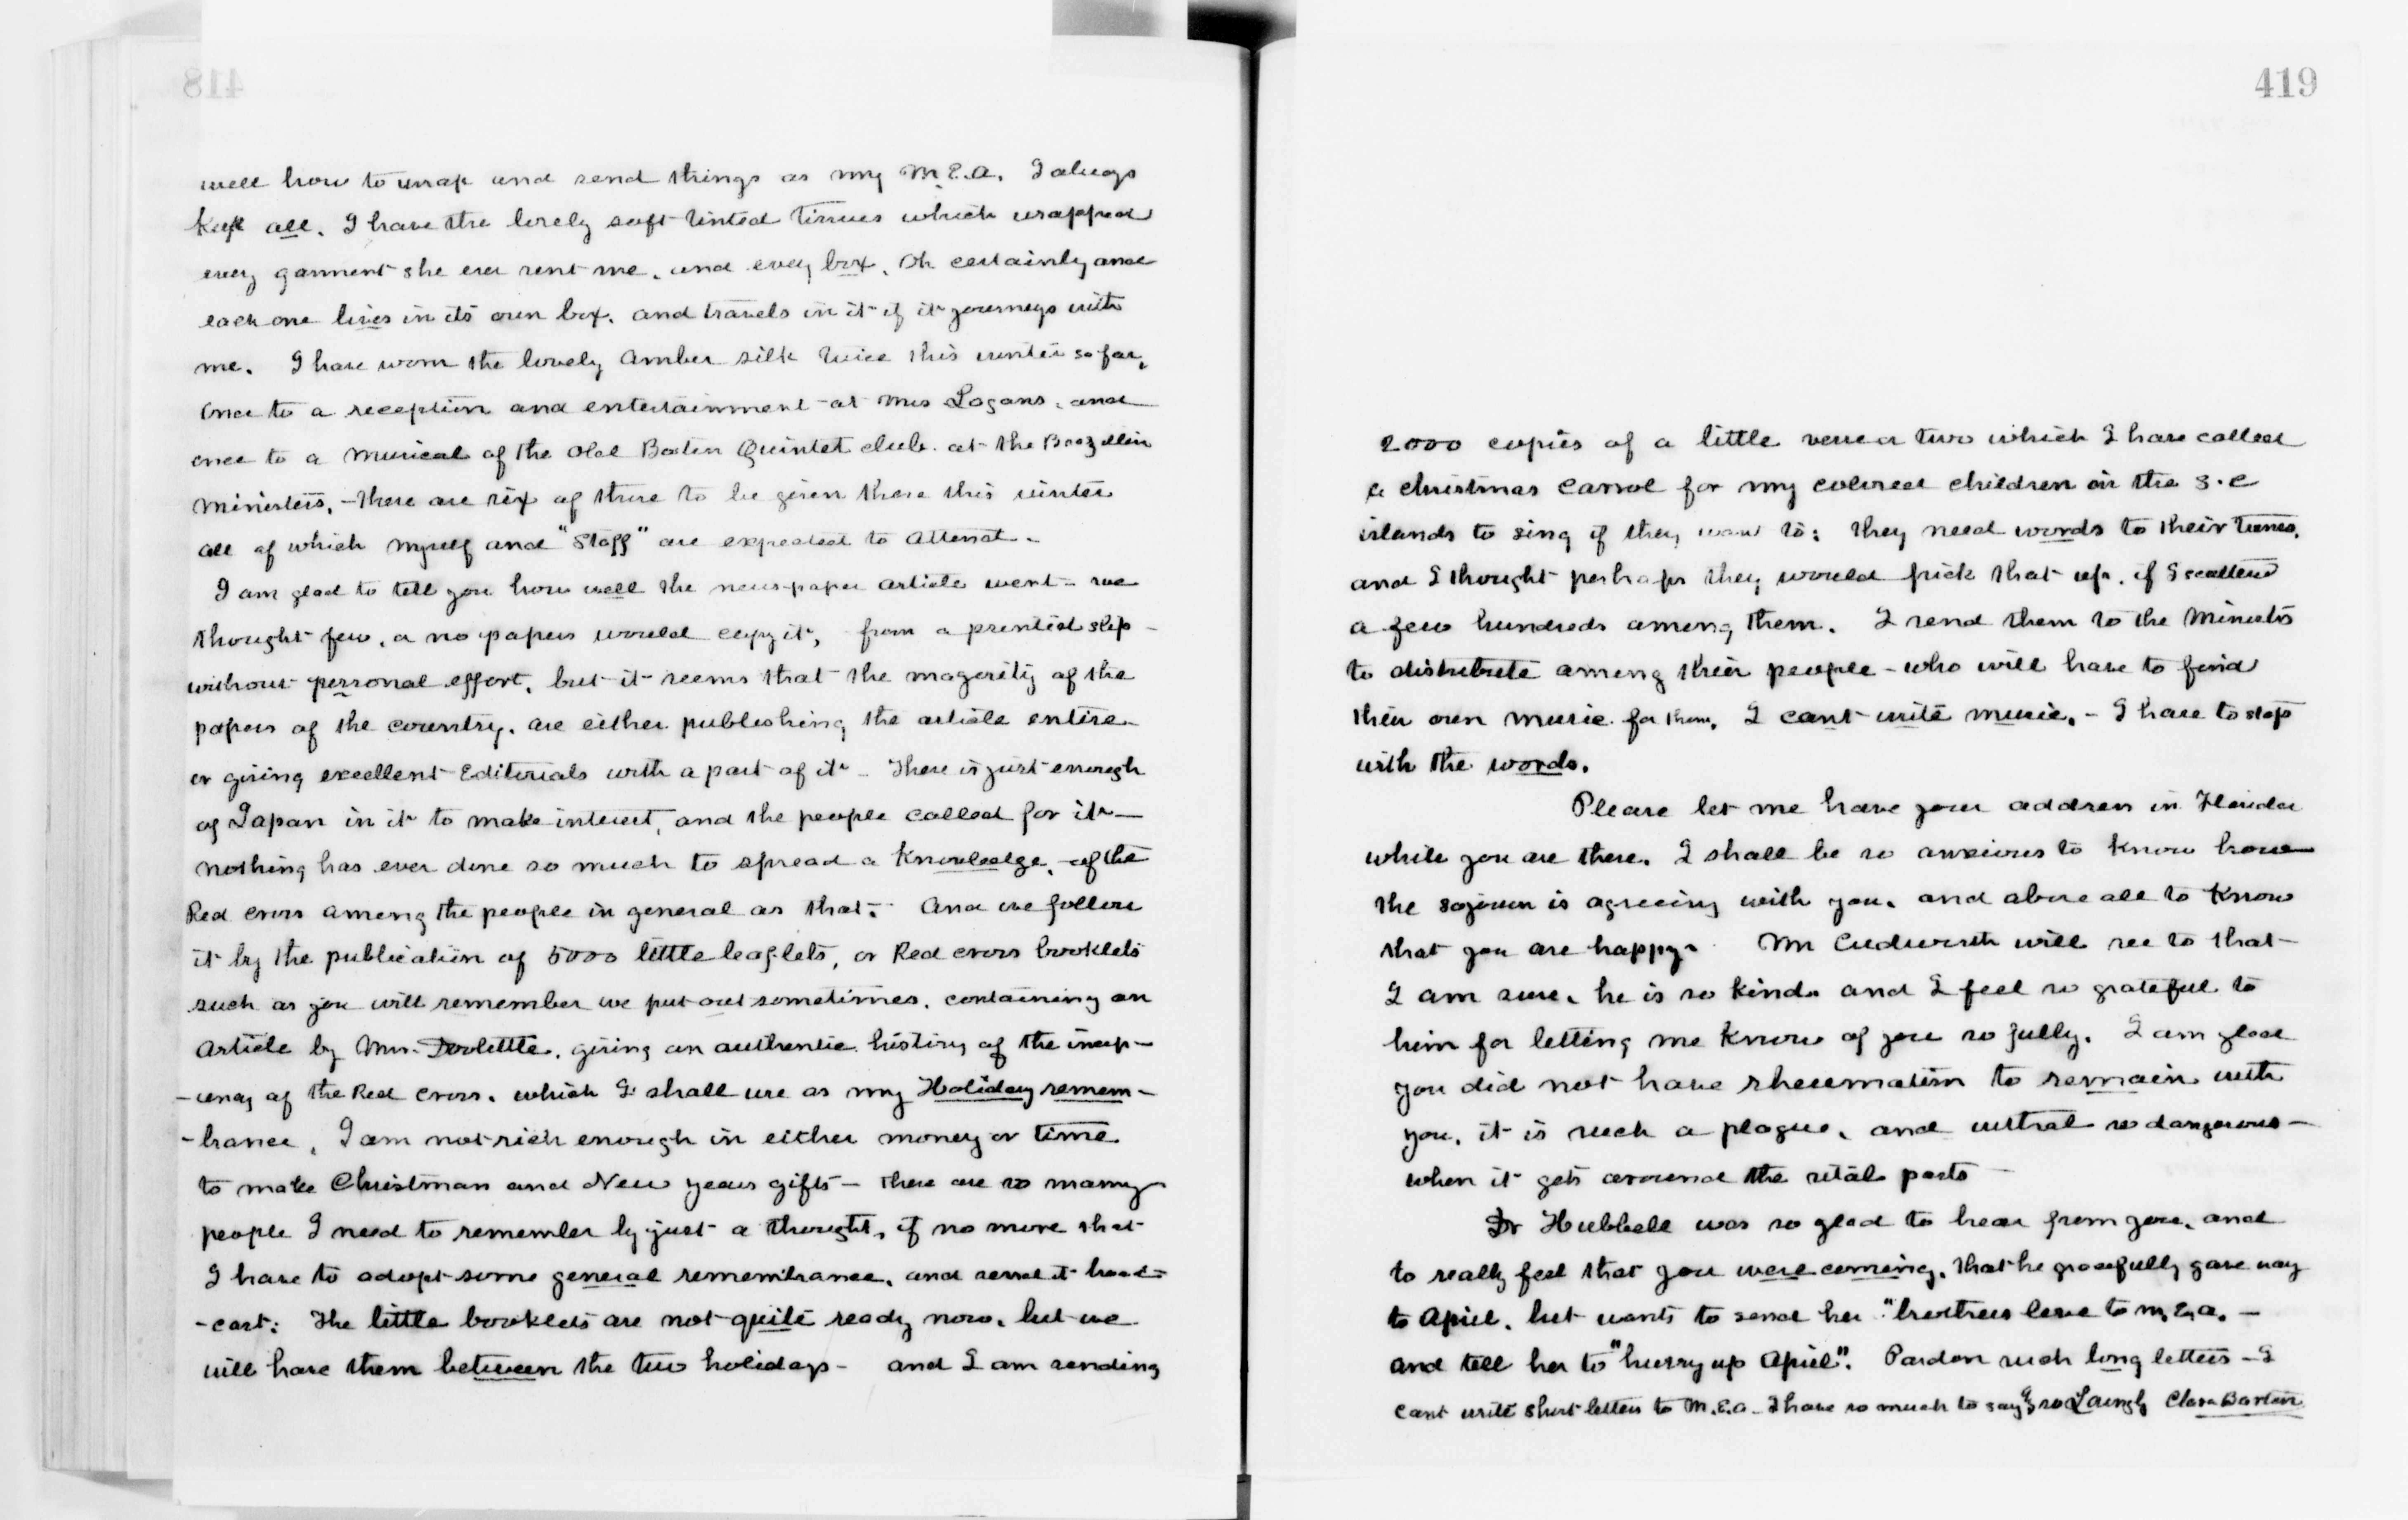 418
well how to wrap and send things as my M.E.A. I always
kept all. I have the lovely soft tinted tissues which wrapped
every garment she ever sent me, and every box. Oh certainly and
each one lives in its own box. and travels in it if it journeys with
me. I have worn the lovely amber silk twice this winter so far,
once to a reception and entertainment at Mrs Logans, and
once to a musical of the Old Boston Quintet club. at the Brazilian
Ministers, - there are six of these to be given there this winter
all of which myself and "Staff" are expected to attend.
I am glad to tell you how well the newspaper article went - we
thought few, or no papers would copy it, from a printed slip -
without personal effort, but it seems that the magority of the
papers of the country. are either publishing the article entire
or giving excellent Editorials with a part of it - There is just enough
of Japan in it to make interest, and the people called for it -
nothing has ever done so much to spread a knowledge, of the
Red Cross among the people in general as that. And we follow
it by the publication of 5000 little leaflets, or Red Cross booklets
such as you will remember we put out sometimes, containing an
article by Mrs. Doolittle, giving an authentic history of the incip-
-iency of the Red Cross. which I shall use as my Holiday remem-
-brance, I am not rich enough in either money or time
to make Christmas and New years gifts - there are so many
people I need to remember by just a thought, if no more that
I have to adopt some general remembrance, and send it broad-
-cast: The little booklets are not quite ready now, but we
will have them between the two holidays - and I am sending
419
2000 copies of a little verse or two which I have called
a christmas Carrol for my colored children on the S.C
islands to sing if they want to: they need words to their tunes,
and I thought perhaps they would pick that up, if I scattered
a few hundreds among them. I send them to the Ministers
to distribute among their people - who will have to find
their own music for them. I cant write music, - I have to stop
with the words.
Please let me have your address in Florida
while you are there. I shall be so anxious to know how
the sojourn is agreeing with you. and above all to know
that you are happy. Mr Cudworth will see to that
I am sure. he is so kind. and I feel so grateful to
him for letting me know of you so fully. I am glad
you did not have rheumatism to remain with
you, it is such a plague, and withal so dangerous -
when it gets around the vital parts -
Dr Hubbell was so glad to hear from you, and
to really feel that you were coming, that he gracefully gave way
to April, but wants to send her "brothers love to M.E.A. -
and tell her to "hurry up April". Pardon such long letters - I
cant write short letters to M.E.A. I have so much to say so Lovingly Clara Barton